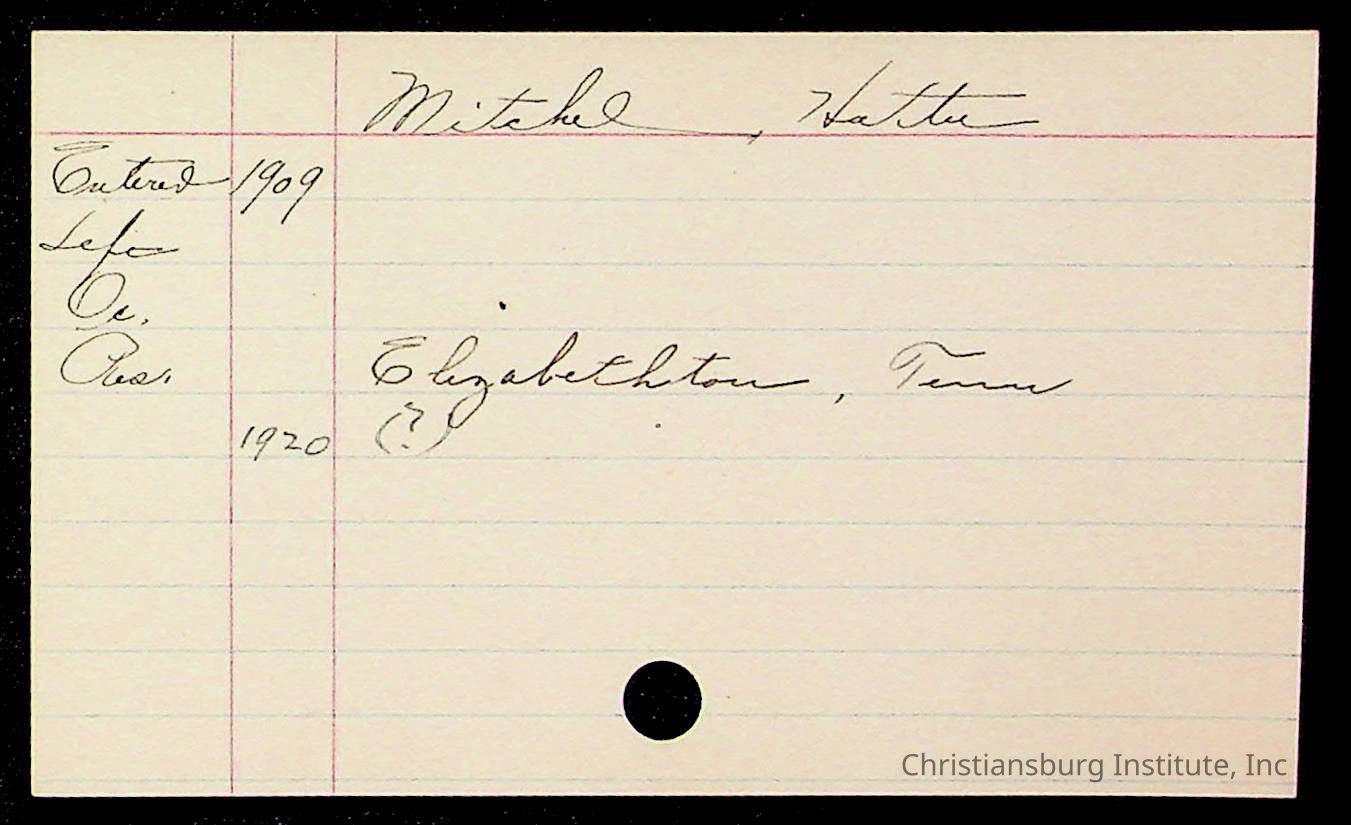 Mitchel, Hattie
Entered 1909
Left
Oc.
Res. Elizabethton, Tenn
1920 (?)
Christiansburg Institute, Inc